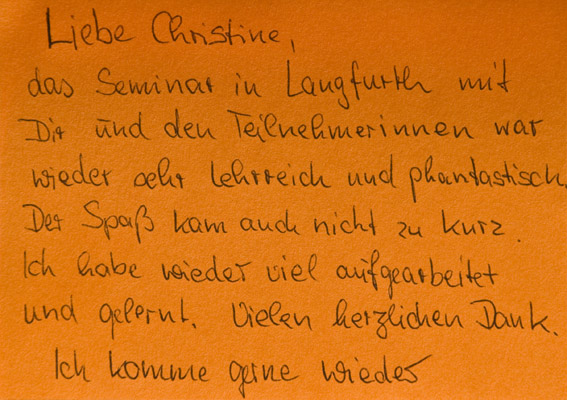 Liebe Christine,
das Seminar in Langfurth mit
Dir und den Teilnehmerinnen war
wieder sehr lehrreich und phantastisch.
Der Spaß kam auch nicht zu kurz.
Ich habe wieder viel aufgearbeitet
und gelernt. Vielen herzlichen Dank.
Ich komme gerne wieder